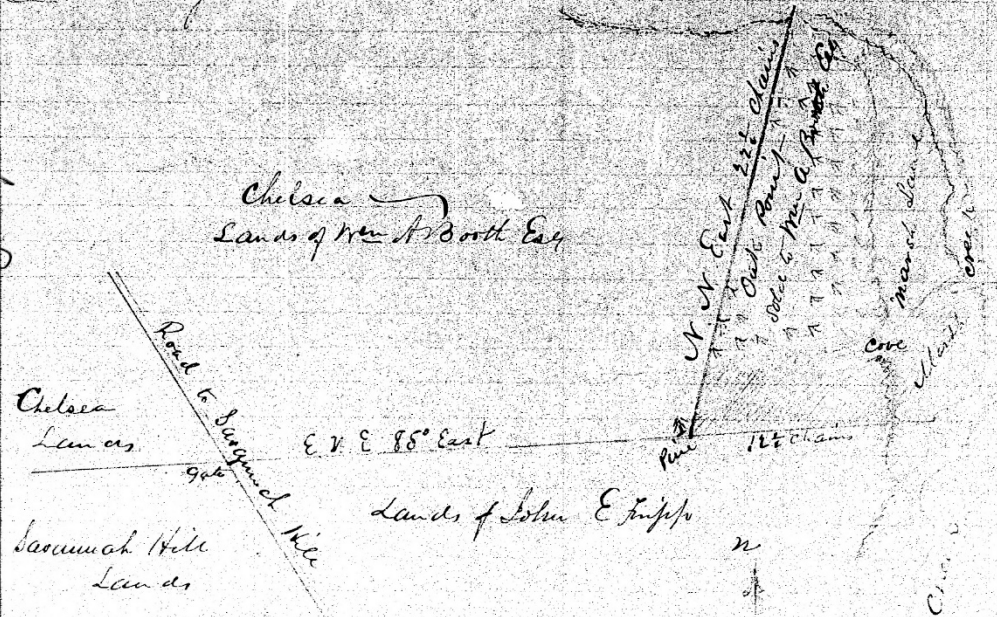 Chelsea
Lands of Wm A Booth Esq
N. N. East 22½ chains
Oak Point
Sold to Wm A Booth Esq
Marsh Land
creek
cove
Marsh
Road to Savannah Hill
Chelsea
Lands
gate
E N E 85° East
Pine
12½ chains
Lands of John E Fripp
Savannah Hill
Lands
N